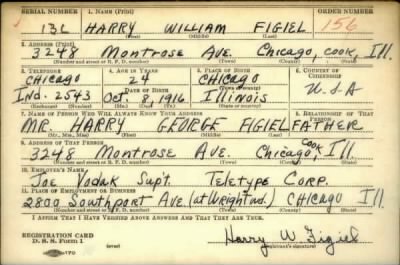 SERIAL NUMBER 1. NAME (Print) ORDER NUMBER
136 HARRY WILLIAM FIGIEL 156
(First) (Middle) (Last)
2. ADDRESS (Print)
3248 Montrose Ave. Chicago, Cook, Ill.
(Number and street or R. F. D. number) (Town) (County) (State)
3. TELEPHONE 4. AGE IN YEARS 5. PLACE OF BIRTH 6. COUNTRY OF CITIZENSHIP
Chicago 24 CHICAGO
DATE OF BIRTH (Town or county)
Ind. 2543 Oct. 8, 1916 Illinois U.S.A
(Exchange) (Number) (Mo.) (Day) (Yr.) (State or country)
7. NAME OF PERSON WHO WILL ALWAYS KNOW YOUR ADDRESS 8. RELATIONSHIP OF THAT PERSON
MR. HARRY GEORGE FIGIEL FATHER
(Mr., Mrs., Miss) (First) (Middle) (Last)
9. ADDRESS OF THAT PERSON
3248 Montrose Ave. Chicago, Cook Ill.
(Number and street or R. F. D. number) (Town) (County) (State)
10. EMPLOYER'S NAME
Joe Vodak Supt. Teletype Corp.
11. PLACE OF EMPLOYMENT OR BUSINESS
2800 Southport Ave. (at Wrightwd.) CHICAGO Ill.
(Number and street or R. F. D. number) (Town) (County) (State)
I AFFIRM THAT I HAVE VERIFIED ABOVE ANSWERS AND THAT THEY ARE TRUE.
REGISTRATION CARD
D. S. S. Form 1 Harry W Figiel
(Registrant's signature)